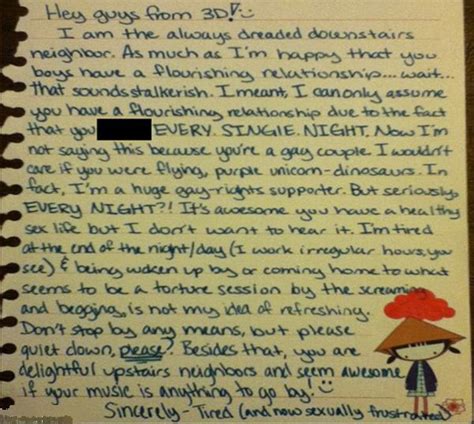 Hey guys from 3D! :)
I am the always dreaded downstairs
neighbor. As much as I'm happy that you
boys have a flourishing relationship... wait...
that sounds stalkerish. I meant, I can only assume
you have a flourishing relationship due to the fact
that you EVERY. SINGLE. NIGHT. Now I'm
not saying this because you're a gay couple. I wouldn't
care if you were flying, purple unicorn-dinosaurs. In
fact, I'm a huge gay-rights supporter. But seriously,
EVERY NIGHT?! It's awesome you have a healthy
sex life but I don't want to hear it. I'm tired
at the end of the night/day (I work irregular hours, you
see) & being woken up by or coming home to what
seems to be a torture session by the screaming
and begging, is not my idea of refreshing.
Don't stop by any means, but please
quiet down, please? Besides that, you are
delightful upstairs neighbors and seem awesome
if your music is anything to go by! :)
Sincerely - Tired (and now sexually frustrated)